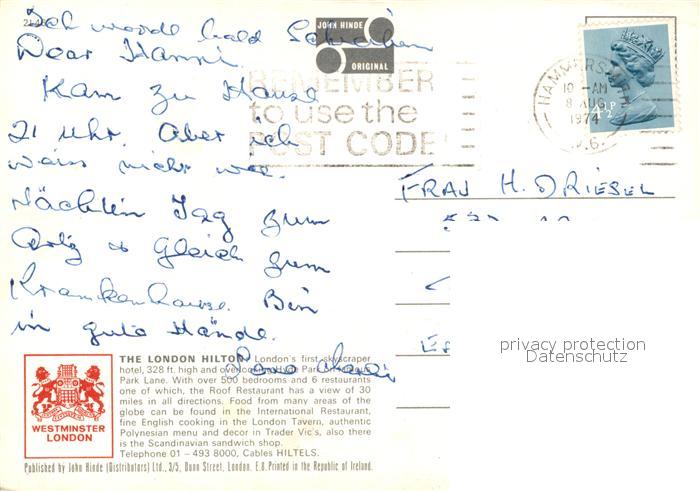 Ich werde bald Schreiben
Dear Hanni.
Kam zu Hause
21 Uhr. Aber ich
weiss nicht wie.
Nächsten Tag zum
Artz + Gleich zum
Krankenhause. Bin
in gute Hände.
Love
JOHN HINDE
ORIGINAL
REMEMBER
to use the
POST CODE
HAMMERSMITH
10 - AM
8 AUG
1974
W.6.
4½P
FRAU H. DRIESEL
privacy protection
Datenschutz
WESTMINSTER
LONDON
THE LONDON HILTON. London's first skyscraper
hotel, 328 ft. high and overlooking Hyde Park
Park Lane. With over 500 bedrooms and 6 restaurants
one of which, the Roof Restaurant has a view of 30
miles in all directions. Food from many areas of the
globe can be found in the International Restaurant,
fine English cooking in the London Tavern, authentic
Polynesian menu and decor in Trader Vic's, also there
is the Scandinavian sandwich shop.
Telephone 01 – 493 8000, Cables HILTELS.
Published by John Hinde (Distributors) Ltd., 3/5, Dunn Street, London. E.8. Printed in the Republic of Ireland.